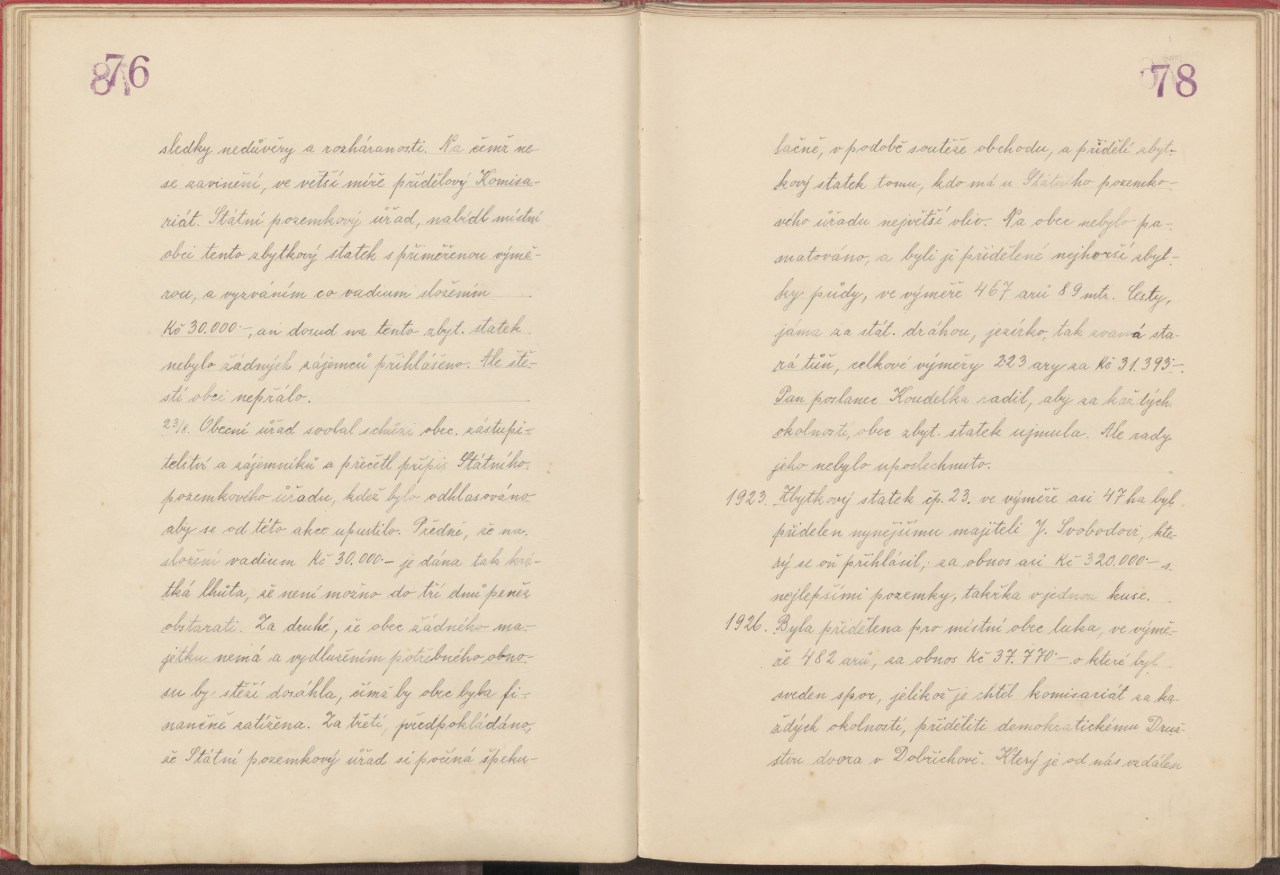 76
sledky nedůvěry a rozháranosti. Na čemž ne
se zavinění, ve větší míře přídělový Komisa-
riát. Státní pozemkový úřad, nabídl místní
obci tento zbytkový statek s přiměřenou výmě-
rou, a vyzváním co vadium složením
Kč 30.000·-, ani dosud na tento zbyt. statek
nebylo žádných zájemců přihlášeno. Ale ště-
stí obci nepřálo.
23/8. Obecní úřad svolal schůzi obec. zástupi-
telství a zájemníků a přečetl přípis Státního
pozemkového úřadu, kdež bylo odhlasováno
aby se od této akce upustilo. Předně, že na
složení vadium Kč 30.000·- je dána tak krá-
tká lhůta, že není možno do tří dnů peněz
obstarati. Za druhé, že obec žádného ma-
jetku nemá a vydlužením potřebného obno-
su by stěží dosáhla, čímž by obec byla fi-
nančně zatížena. Za třetí, předpokládáno,
že Státní pozemkový úřad si počíná špeku-
78
lačně, v podobě soutěže obchodu, a přidělí zbyt-
kový statek tomu, kdo má u Státního pozemko-
vého úřadu největší vliv. Na obec nebylo pa-
matováno, a byli jí přidělené nejhorší zbyt-
ky půdy, ve výměře 467 arů 89 mtr. Cesty,
jáma za stát. dráhou, jezírko, tak zvaná sta-
rá tůň, celkové výměry 223 ary za Kč 31.393·-.
Pan poslanec Koudelka radil, aby za každých
okolností, obec zbyt. statek ujmula. Ale rady
jeho nebylo uposlechnuto.
1923. Zbytkový statek čp. 23. ve výměře asi 47 ha byl
přidělen nynějšímu majiteli J. Svobodovi, kte-
rý se oň přihlásil, za obnos asi Kč 320.000·- s
nejlepšími pozemky, takřka v jednom kuse.
1926. Byla přidělena pro místní obec luka, ve výmě-
ře 482 arů, za obnos Kč 37.770·- o které byl
sveden spor, jelikož je chtěl komisariát za ka-
ždých okolností, přiděliti demokratickému Druž-
stvu dvora v Dobřichově. Který je od nás vzdálen